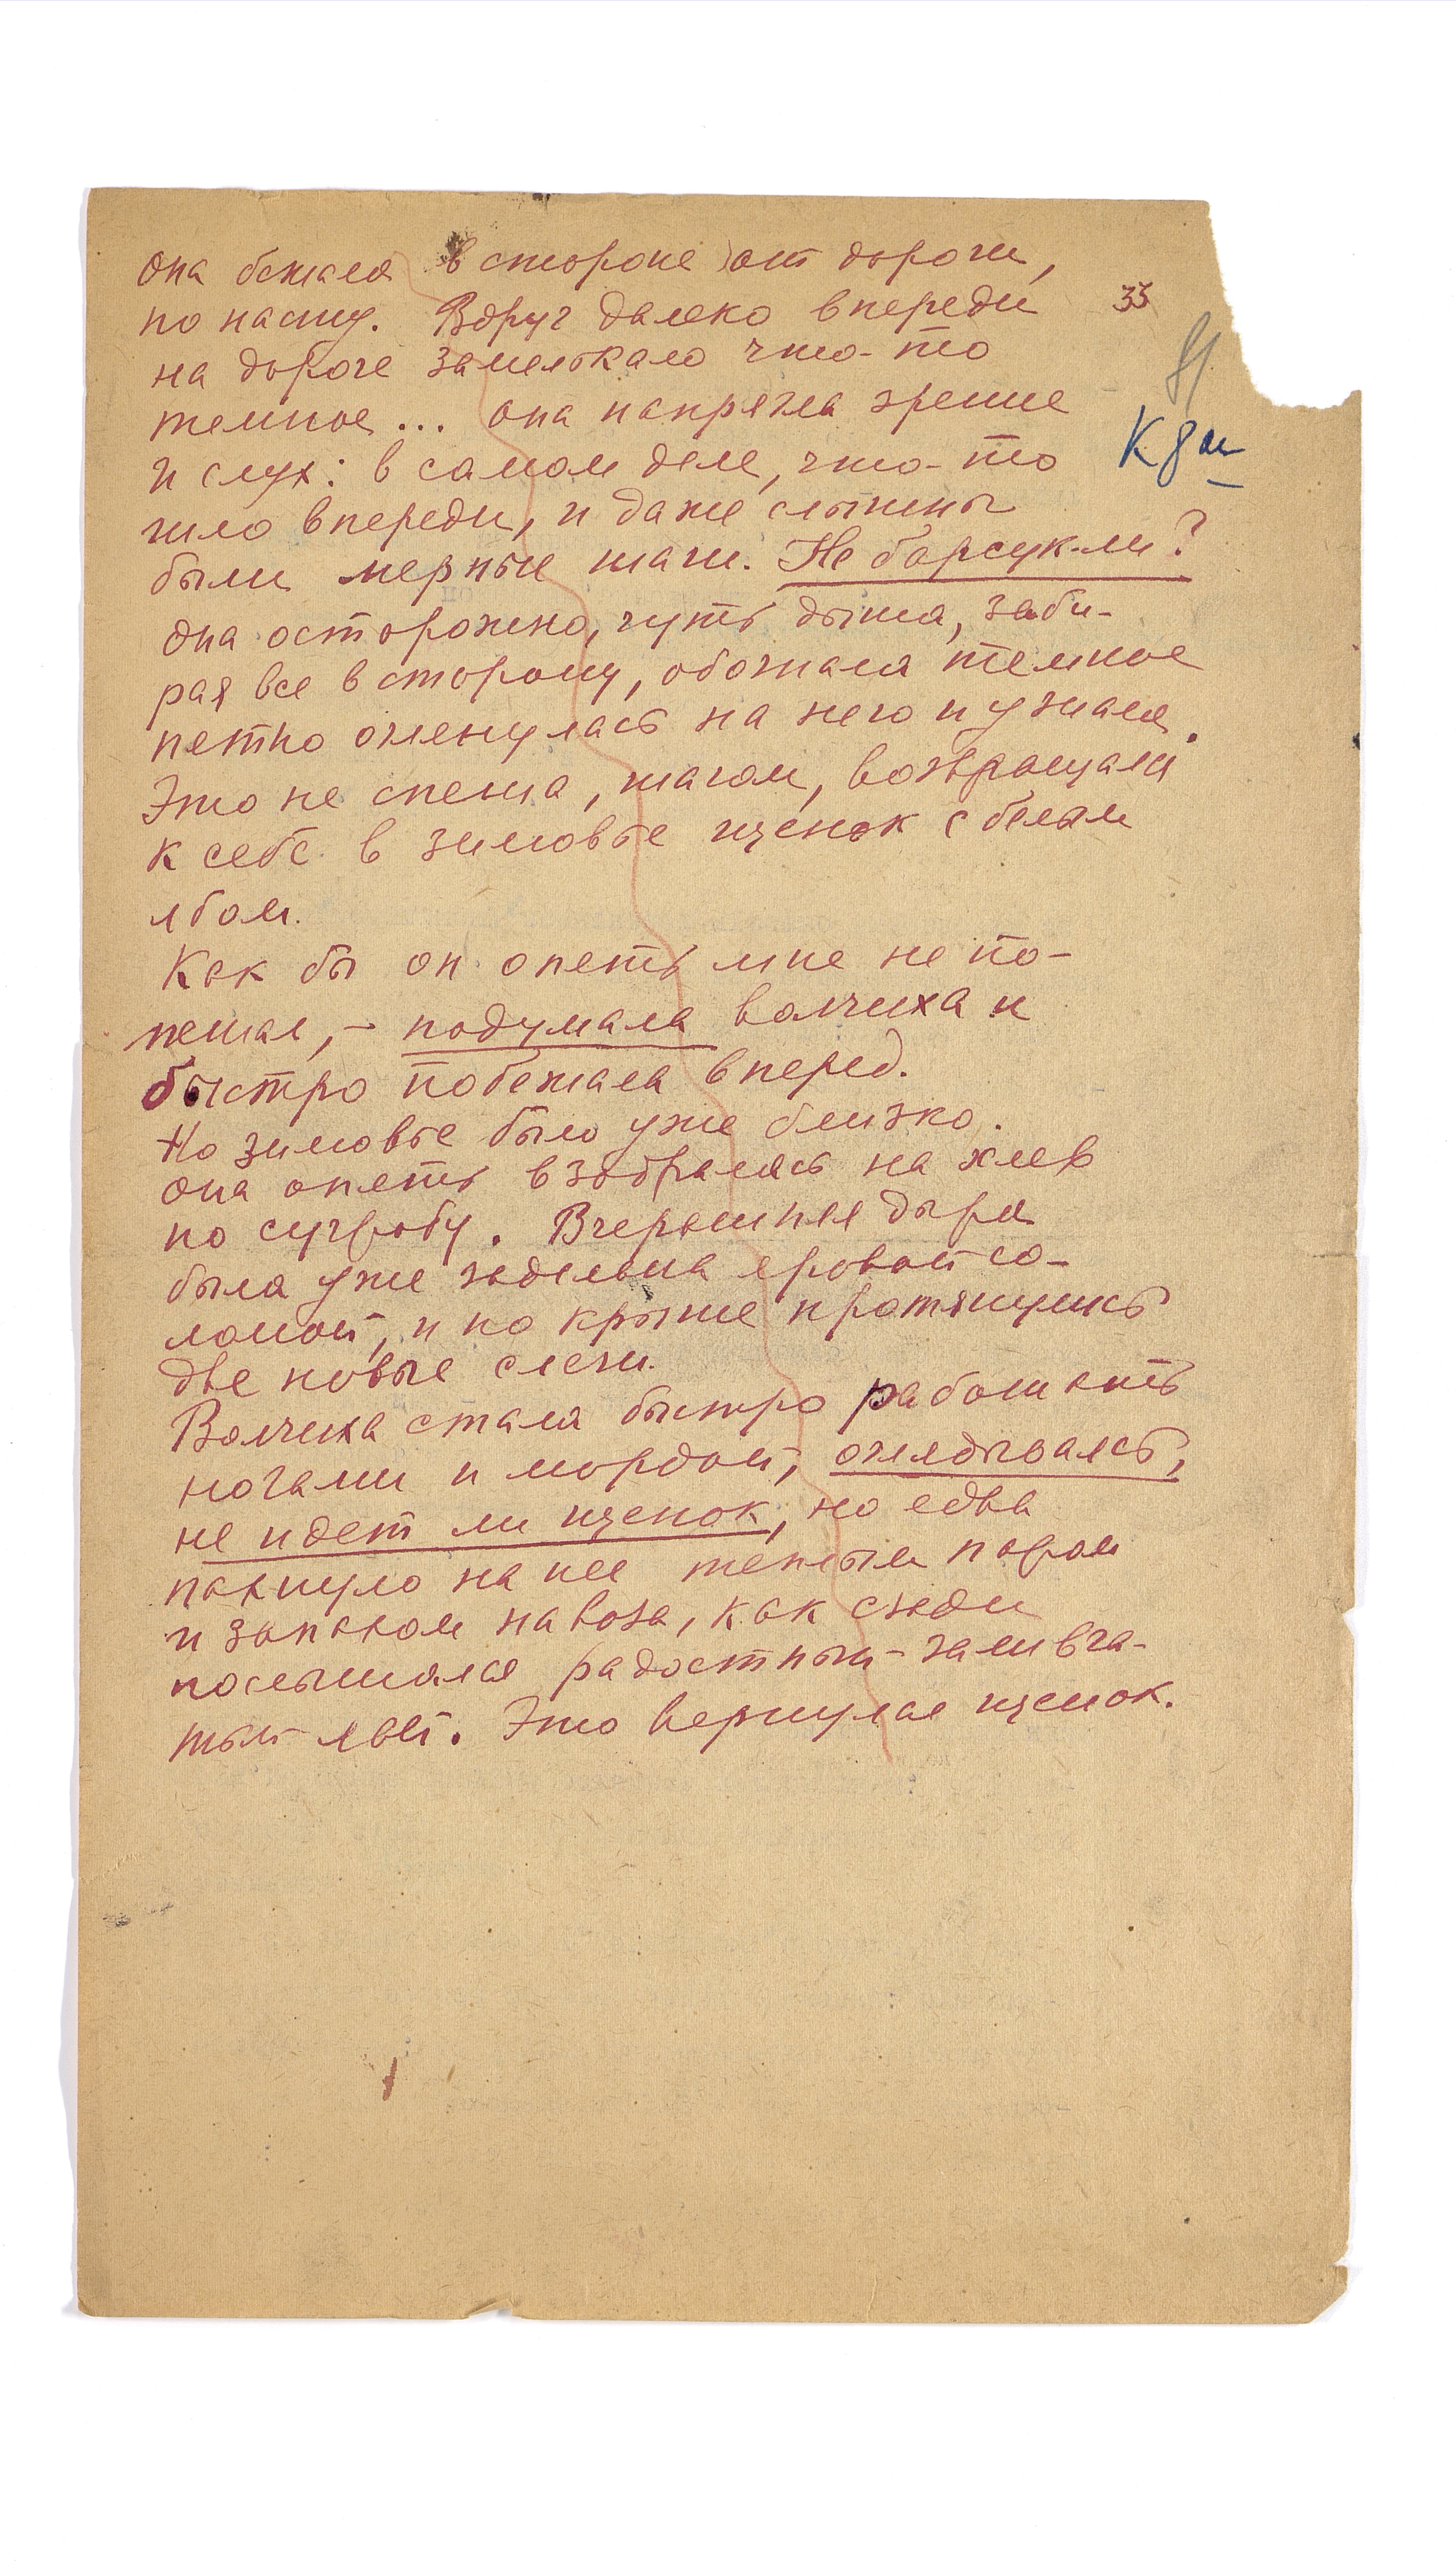 она бежала в стороне от дороги,
по насту. Вдруг далеко впереди
33
на дороге замелькало что-то
темное... она напрягла зрение
К 8 м
и слух: в самом деле, что-то
шло впереди, и даже слышны
были мерные шаги. Не барсук-ли?
Она осторожно, чуть дыша, заби-
рая все в сторону, обогнала темное
пятно оглянулась на него и узнала.
Это не спеша, шагом, возвращался
к себе в зимовье щенок с белым
лбом.
Как бы он опять мне не по-
мешал, - подумала волчиха и
быстро побежала вперед.
Но зимовье было уже близко.
Она опять взобралась на хлев
по сугробу. Вчерашняя дыра
была уже заделана яровой со-
ломой, и по крыше протянулись
две новые слеги.
Волчиха стала быстро работать
ногами и мордой, оглядываясь,
не идет ли щенок, но едва
пахнуло на нее теплым паром
и запахом навоза, как сзади
послышался радостный-заливча-
тый лай. Это вернулся щенок.